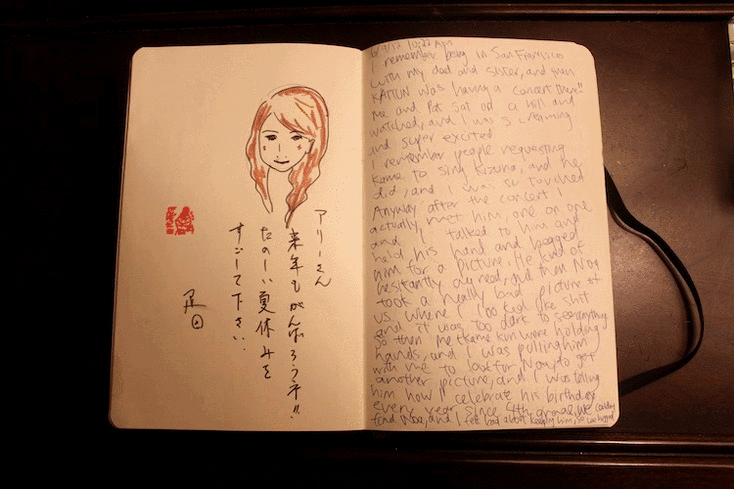 アリーさん
来年もがんばろうネ!!
たのしい夏休みを
すごして下さい.
10:22
I remember being in San Francisco
with my dad and sister, and then
KATTUN was having a concert there!!
Me and Pat sat on a hill and
watched, and I was screaming
and super excited
I remember people requesting
kame to sing kizuna, and he
did, and I was so touched
Anyway after the concert I
actually met him, one on one
and talked to him and
held his hand and begged
him for a picture. He kind of
hesitantly agreed, and then Noa
took a really bad picture of
us where I looked like shit
and it was too dark to see anything
So then me + kame kun were holding
hands, and I was pulling him
with me to look for Noa, to get
another picture, and I was telling
him how I celebrate his birthday
every year since 4th grade. We couldn't
find Noa, and I felt bad about keeping him, so we hugged